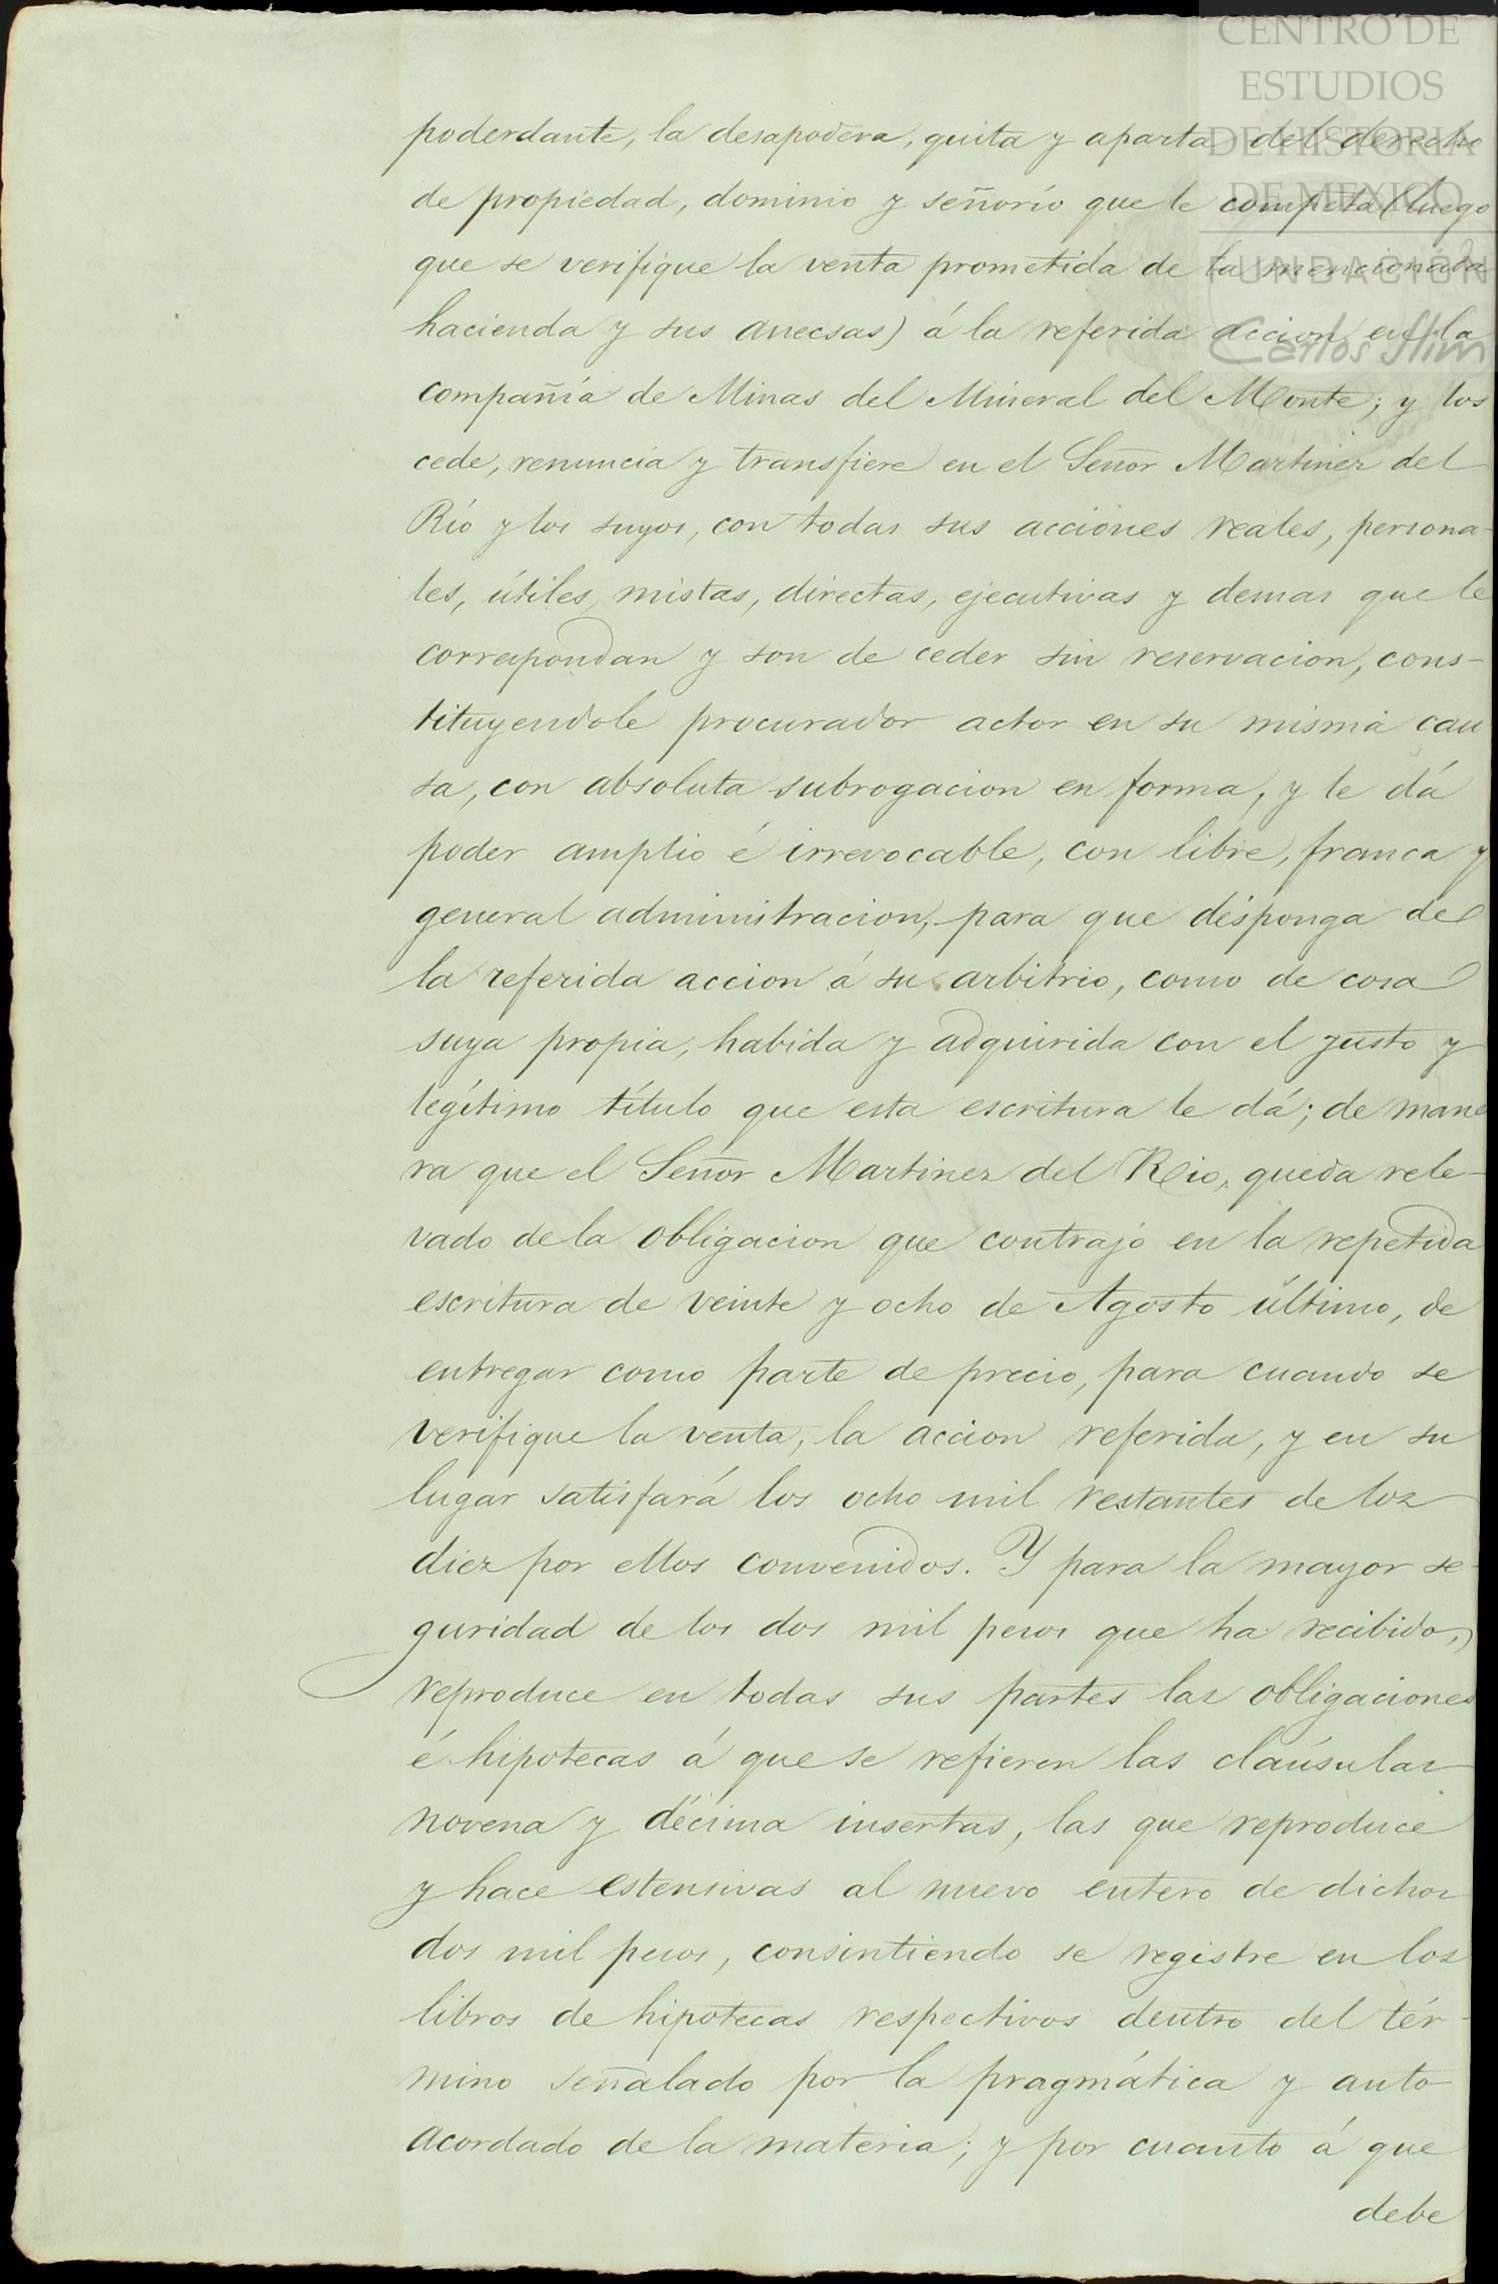 CENTRO DE
ESTUDIOS
DE HISTORIA
DE MEXICO
FUNDACIÓN
Carlos Slim
poderdante, la desapodera, quita y aparta del derecho
de propiedad, dominio y señorío que le competa (luego
que se verifique la venta prometida de la mencionada
hacienda y sus anecsas) á la referida accion en la
compañía de Minas del Mineral del Monte; y los
cede, renuncia y transfiere en el Señor Martinez del
Río y los suyos, con todas sus acciones reales, persona-
les, útiles, mistas, directas, ejecutivas y demas que le
correspondan y son de ceder sin reservacion, cons-
tituyendole procurador actor en su misma cau
sa, con absoluta subrogacion en forma, y le dá
poder amplio é irrevocable, con libre, franca y
general administracion, para que disponga de
la referida accion á su arbitrio, como de cosa
suya propia, habida y adquirida con el justo y
legítimo título que esta escritura le dá; de mane
ra que el Señor Martinez del Rio, queda rele-
vado de la obligacion que contrajo en la repetida
escritura de veinte y ocho de Agosto último, de
entregar como parte de precio, para cuando se
verifique la venta, la accion referida, y en su
lugar satisfará los ocho mil restantes de los
diez por ellos convenidos. Y para la mayor se-
guridad de los dos mil pesos que ha recibido,
reproduce en todas sus partes las obligaciones
é hipotecas á que se refieren las claúsulas
novena y décima insertas, las que reproduce
y hace estensivas al nuevo entero de dichos
dos mil pesos, consintiendo se registre en los
libros de hipotecas respectivos dentro del tér-
mino señalado por la pragmática y auto
acordado de la materia; y por cuanto á que
debe